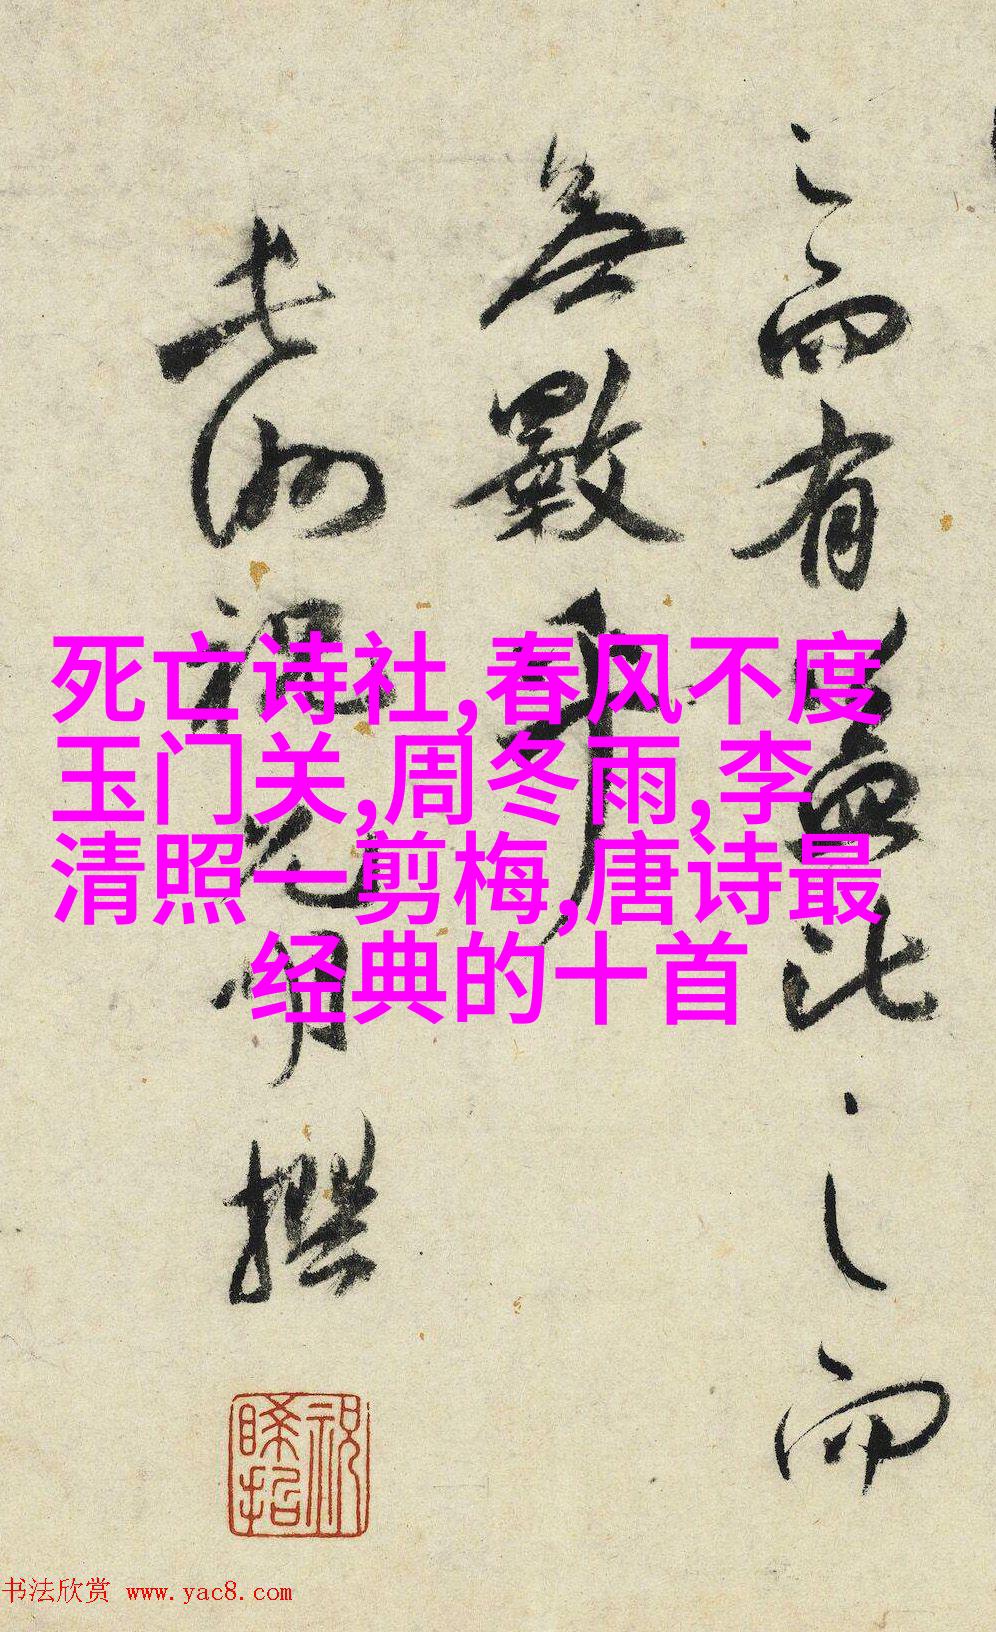 之而有
之而
無數耶
長洲祝允明撰
死亡诗社,春风不度
玉门关,周冬雨,李
清照一剪梅,唐诗最
经典的十首
书法欣赏 www.yac8.com